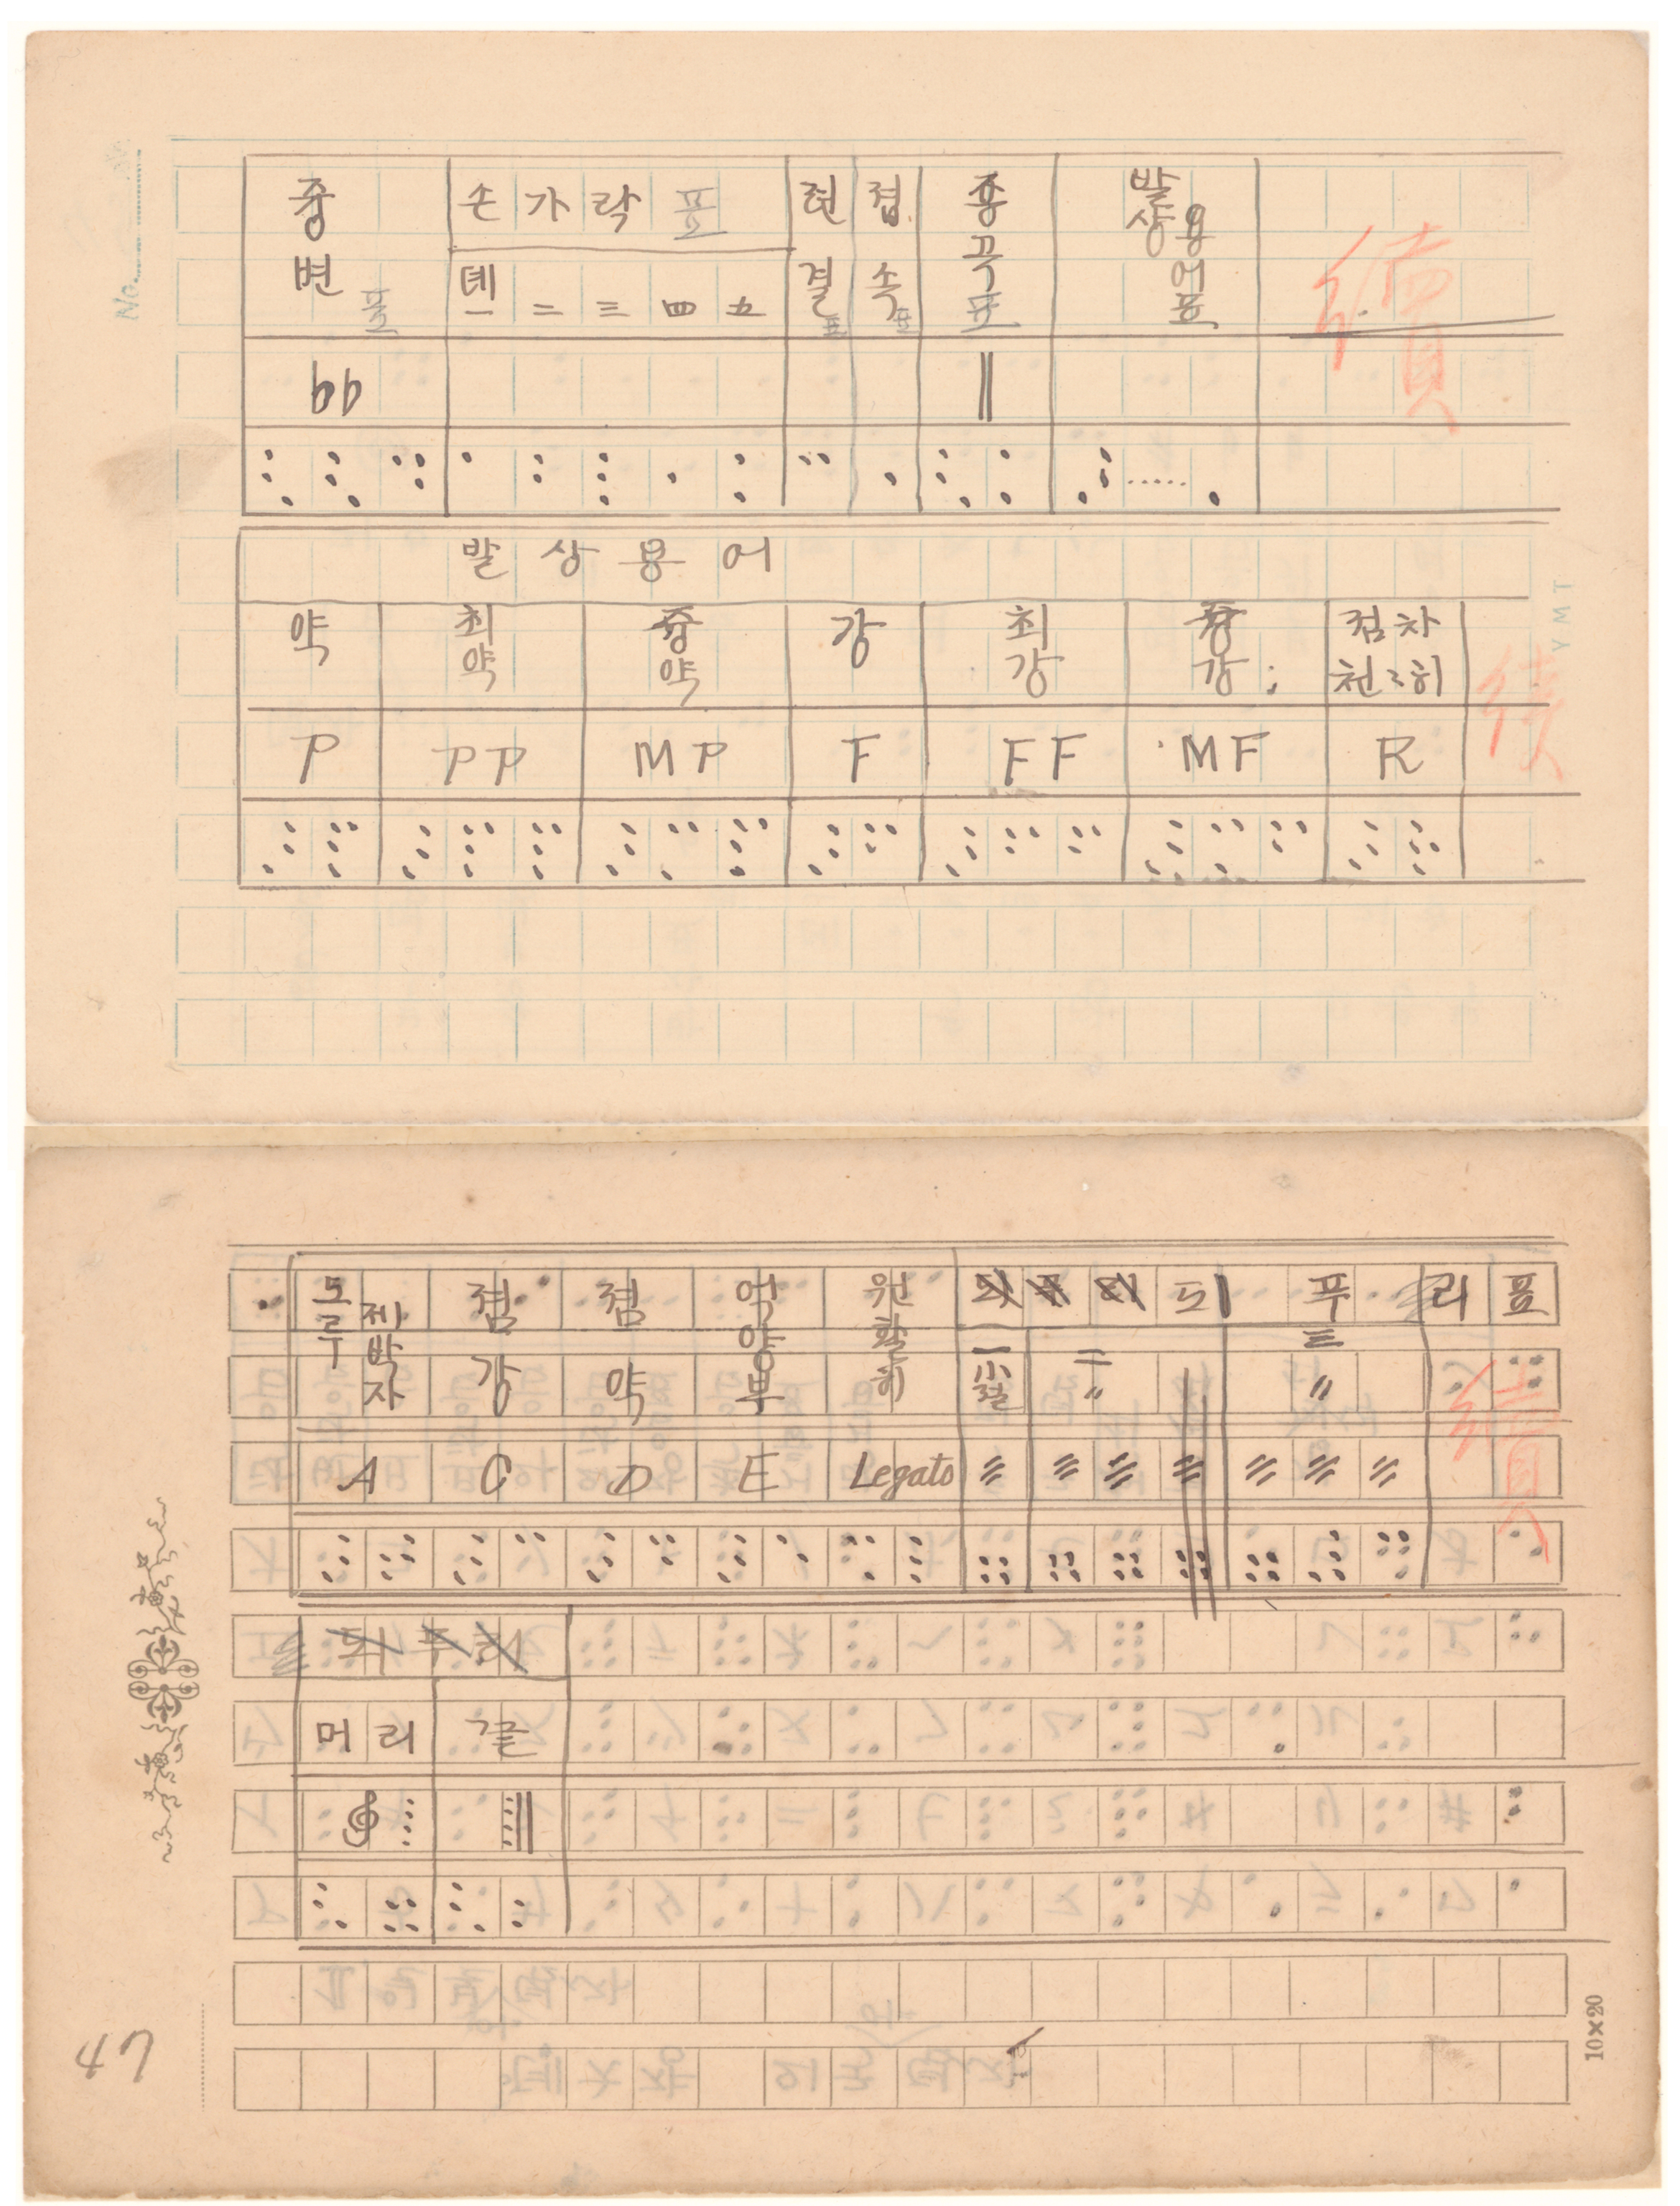 No.
중변표 손가락표 현결표 접속표 종곡표 발상용어표
뎨一 二 三 四 五
続
♭♭ ‖
발상용어
약 최약 중약 강 최강 중강 점차천천히
続
P PP MP F FF MF R
YMT
도루제박자 점강 점약 억양부 원활히 되푸리표
一小절 二〃 三〃
続
A C D E Legato
머리 끝
47
10×20